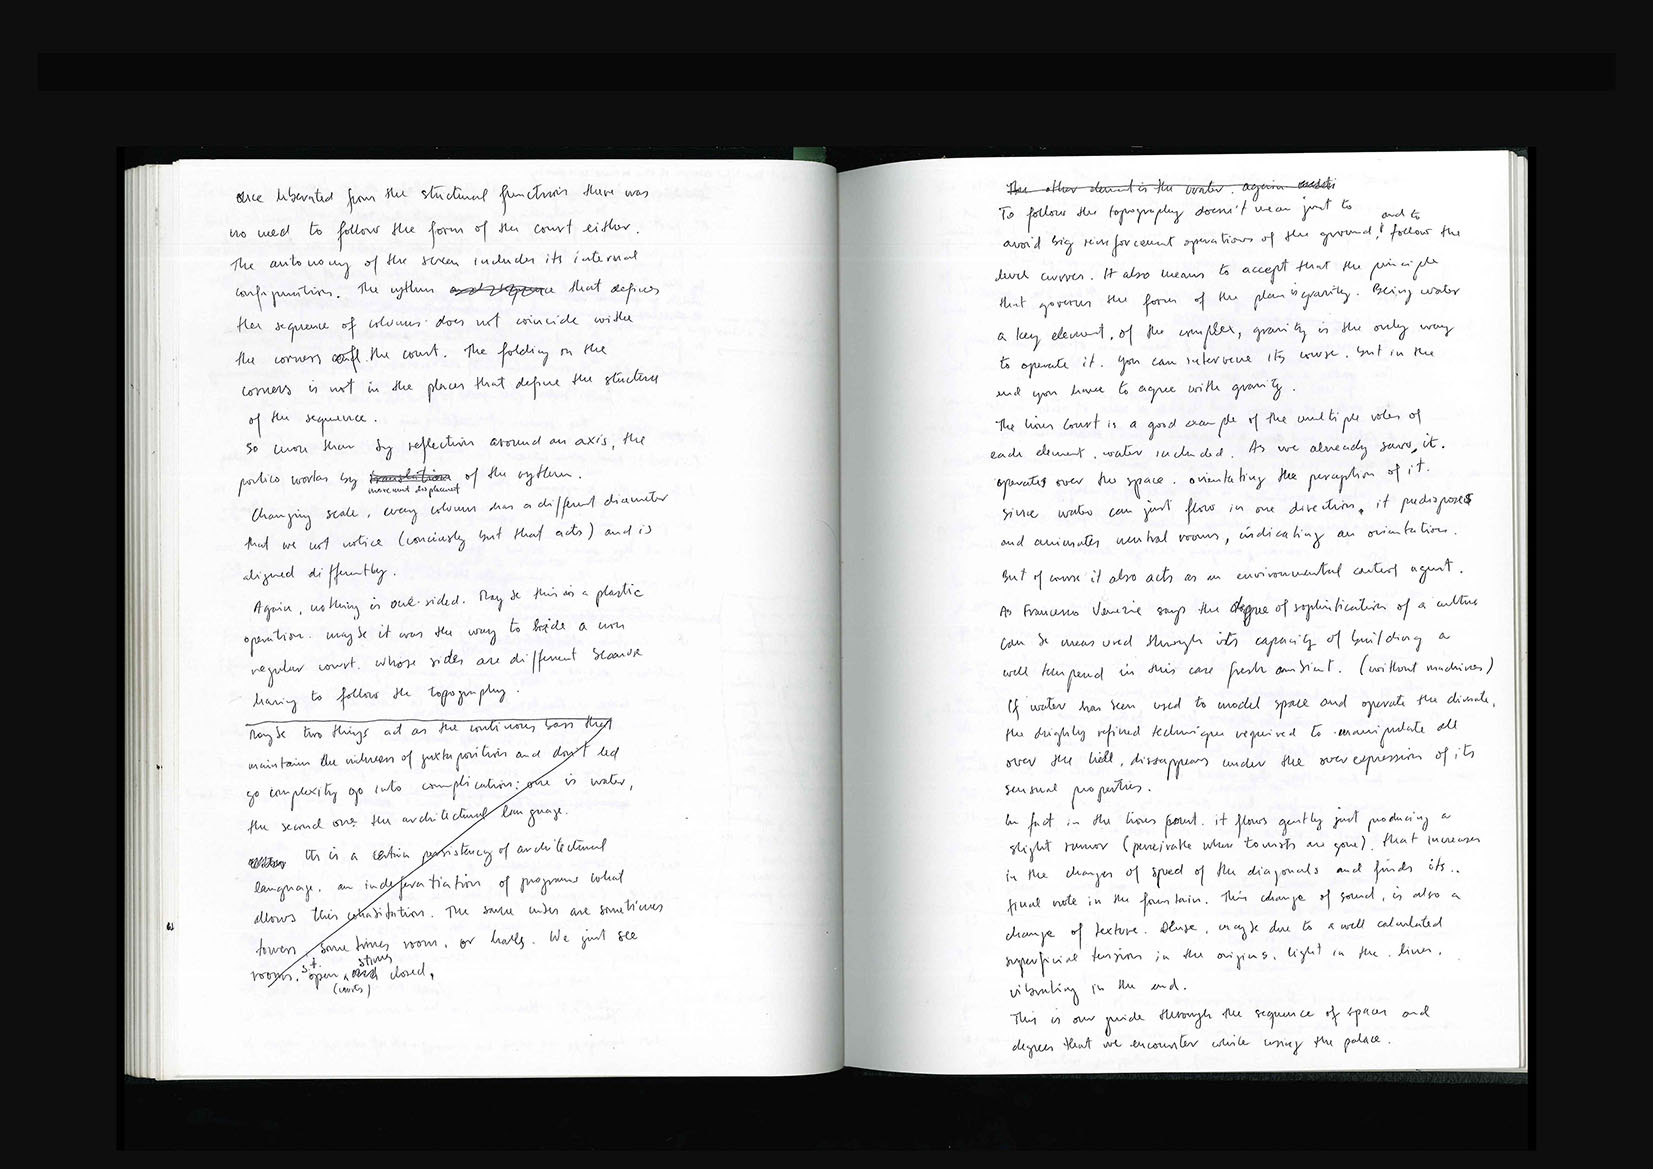 once liberated from the structural functions there was
no need to follow the form of the court either.
The autonomy of the screen includes its internal
configuration. The rythm that defines
the sequence of columns does not coincide withe
the corners of the court. The folding on the
corners is not in the places that define the structure
of the sequence.
So more than by reflection around an axis, the
portico works by translation of the rythm.
movement displacement
Changing scale, every column has a different diameter
that we not notice (conciously but that acts) and is
aligned differently.
Again, nothing is one-sided. May be this is a plastic
operation. maybe it was the way to hide a non
regular court. whose sides are different because
having to follow the topography.
Maybe two things act as the continuous bass that
maintain the richness of juxtaposition and don't led
go complexity go into complication: one is water,
the second one the architectural language.
its is a certain persistency of architectural
language, an of programs what
allows this cohabitation. The same are sometimes
towers, sometimes room, or halls. We just see
stimes
rooms. s.t. open, closed,
(courts)
The other element is the water. again
To follow the topography doesn't mean just to
and to
avoid big reinforcement operations of the ground, follow the
level curves. It also means to accept that the principle
that governs the form of the plan is gravity. Being water
a key element, of the complex, gravity is the only way
to operate it. You can intervene its course. but in the
end you have to agree with gravity.
The lions court is a good example of the multiple roles of
each element, water included. As we already saw, it.
operates over the space. orientating the perception of it.
since water can just flow in one direction, it predisposes
and animates neutral rooms, indicating an orientation.
But of course it also acts as an environmental control agent.
As Francesco Venezia says the degree of sophistication of a culture
can be measured through its capacity of building a
well tempered in this case fresh ambient. (without machines)
If water has been used to model space and operate the climate,
the highly refined technique required to manipulate all
over the hill, dissappears under the over expression of its
sensual properties.
In fact in the lions court. it flows gently just producing a
slight rumor (perceivable when tourists are gone). that increases
in the changes of speed of the diagonals and finds its..
final note in the fountain. This change of sound, is also a
change of texture. Dense, maybe due to a well calculated
superficial tension in the origins. light in the. lines.
vibrating in the end.
This is our guide through the sequence of spaces and
degrees that we encounter while using the palace.